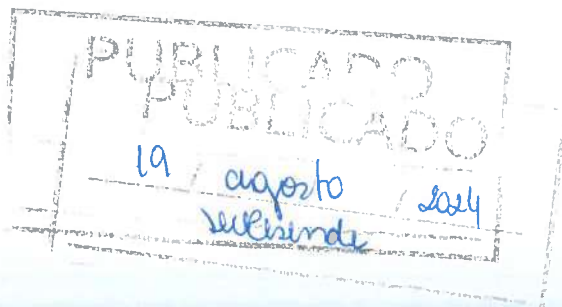 PUBLICADO
PUBLICADO
19 / agosto / 2024